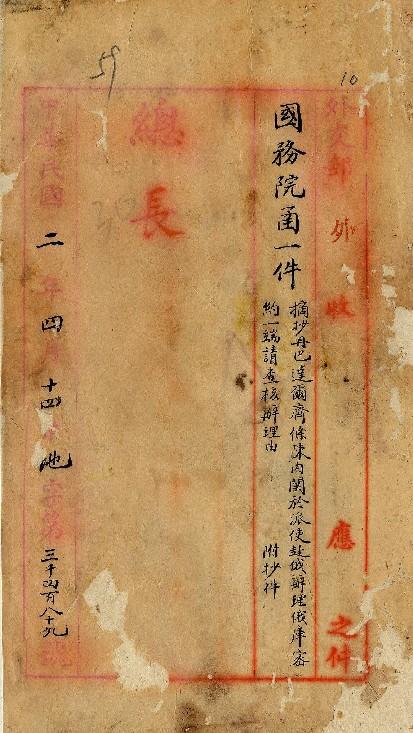 10
外交部 外 收 應 之件
國務院函一件
摘抄丹巴達爾濟條陳內關於派使赴俄辦理俄庫密
約一端請查核辦理由 附抄件
總長
中華民國二年四月十四日 地字第三千四百八十九號